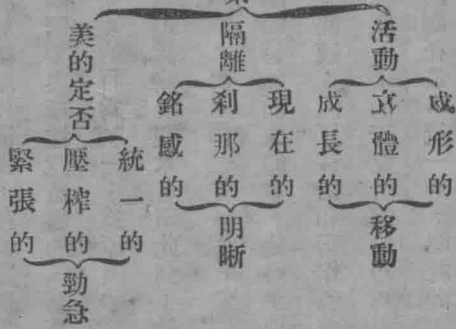 活動
成形的
立體的
成長的
移動
隔離
現在的
刹那的
銘感的
明晰
美的定否
統一的
壓榨的
緊張的
勁急